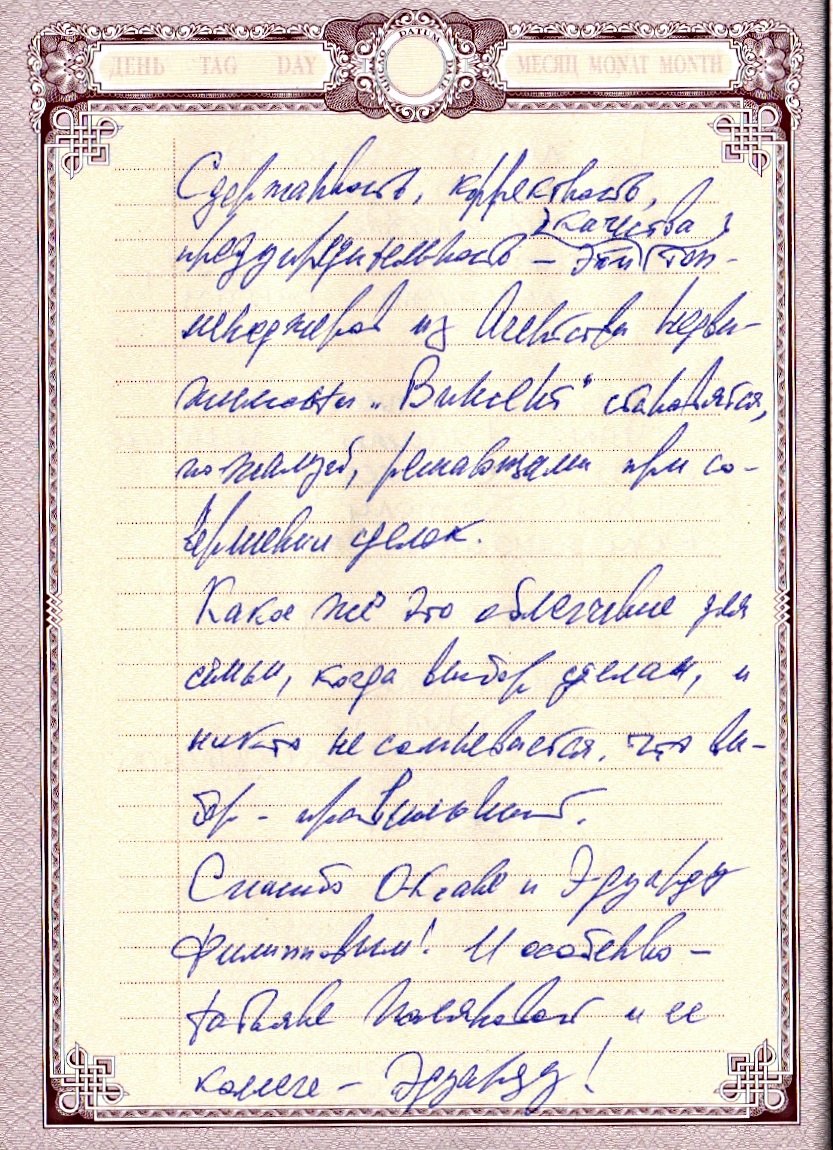 ДЕНЬ TAG DAY
ЧИСЛО DATUM DATE
МЕСЯЦ MONAT MONTH
Сдержанность, корректность,
качества
предупредительность – эти топ-
менеджеров из Агентства недви-
жимости „Винсент“ становятся,
пожалуй, решающими при со-
вершении сделок.
Какое же это облегчение для
семьи, когда выбор сделан, и
никто не сомневается, что вы-
бор – правильный.
Спасибо Оксане и Эдуарду
Филипповым! И особенно –
Татьяне Поляковой и ее
коллеге – Эдуарду!